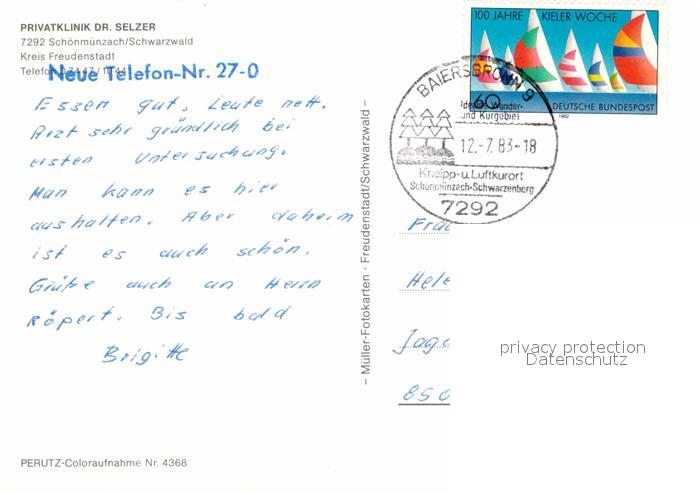 PRIVATKLINIK DR. SELZER
7292 Schönmünzach/Schwarzwald
Kreis Freudenstadt
Neue Telefon-Nr. 27-0
Essen gut, Leute nett.
Arzt sehr gründlich bei
ersten Untersuchung.
Man kann es hier
aushalten. Aber daheim
ist es auch schön.
Grüße auch an Herrn
Röpert. Bis bald
Brigitte
PERUTZ-Coloraufnahme Nr. 4368
– Müller-Fotokarten · Freudenstadt/Schwarzwald –
100 JAHRE KIELER WOCHE
60
DEUTSCHE BUNDESPOST
1982
BAIERSBRONN 9
Ideales Wander-
und Kurgebiet
12.-7.83-18
Kneipp-u.Luftkurort
Schönmünzach-Schwarzenberg
7292
privacy protection
Datenschutz